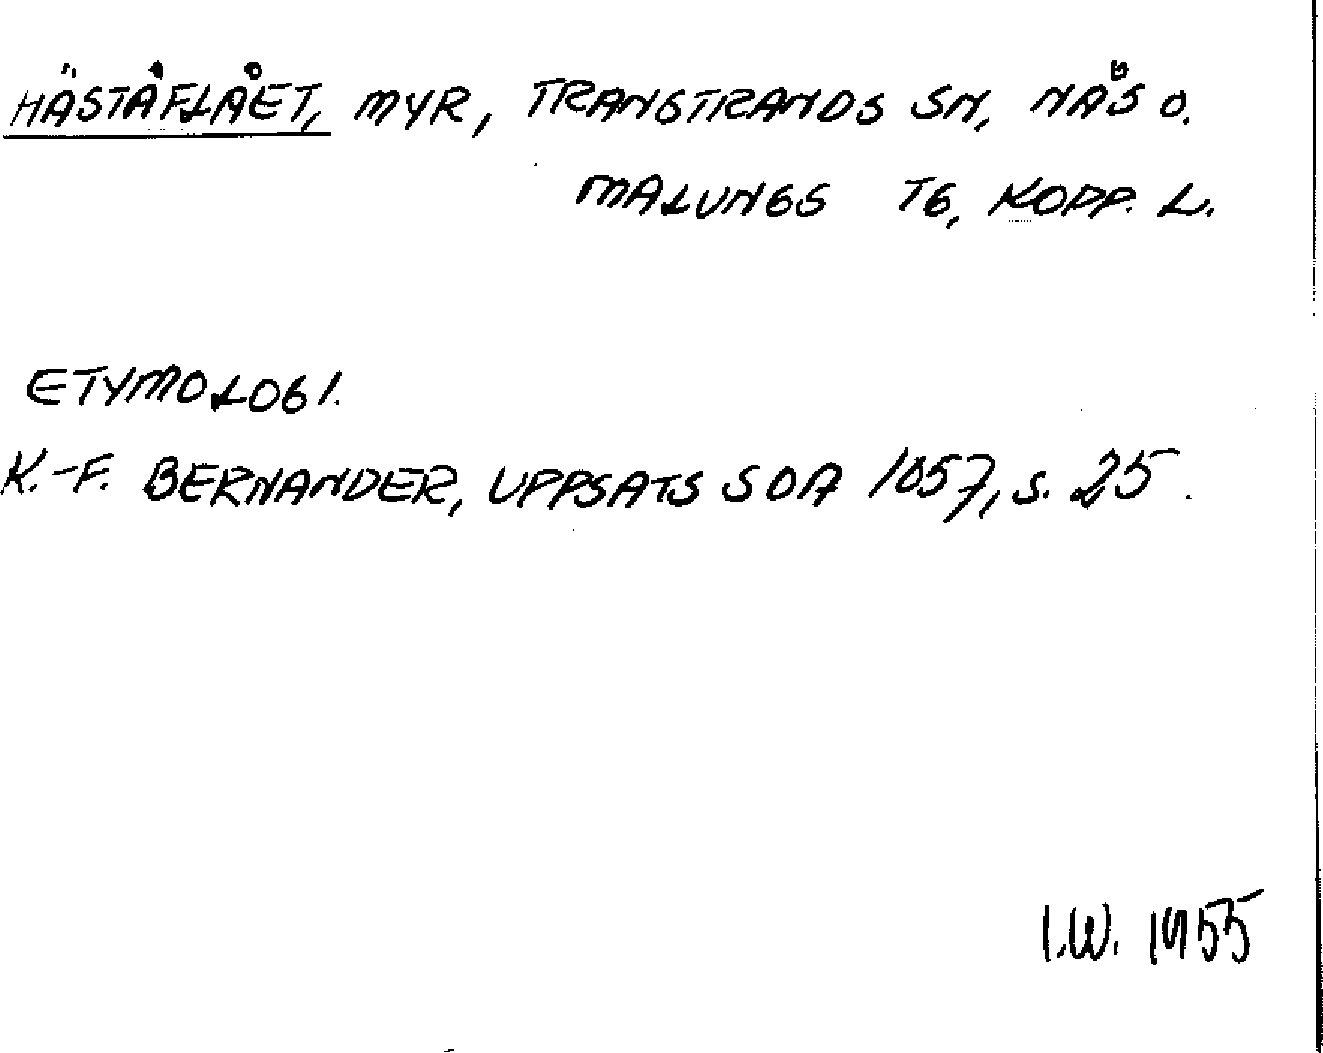 HÄSTÅFLÅET, MYR, TRANSTRANDS SN, NÄS O.
MALUNGS TG, KOPP. L.
ETYMOLOGI.
K.-F. BERNANDER, UPPSATS SOA 1057, S. 25.
I.W. 1955